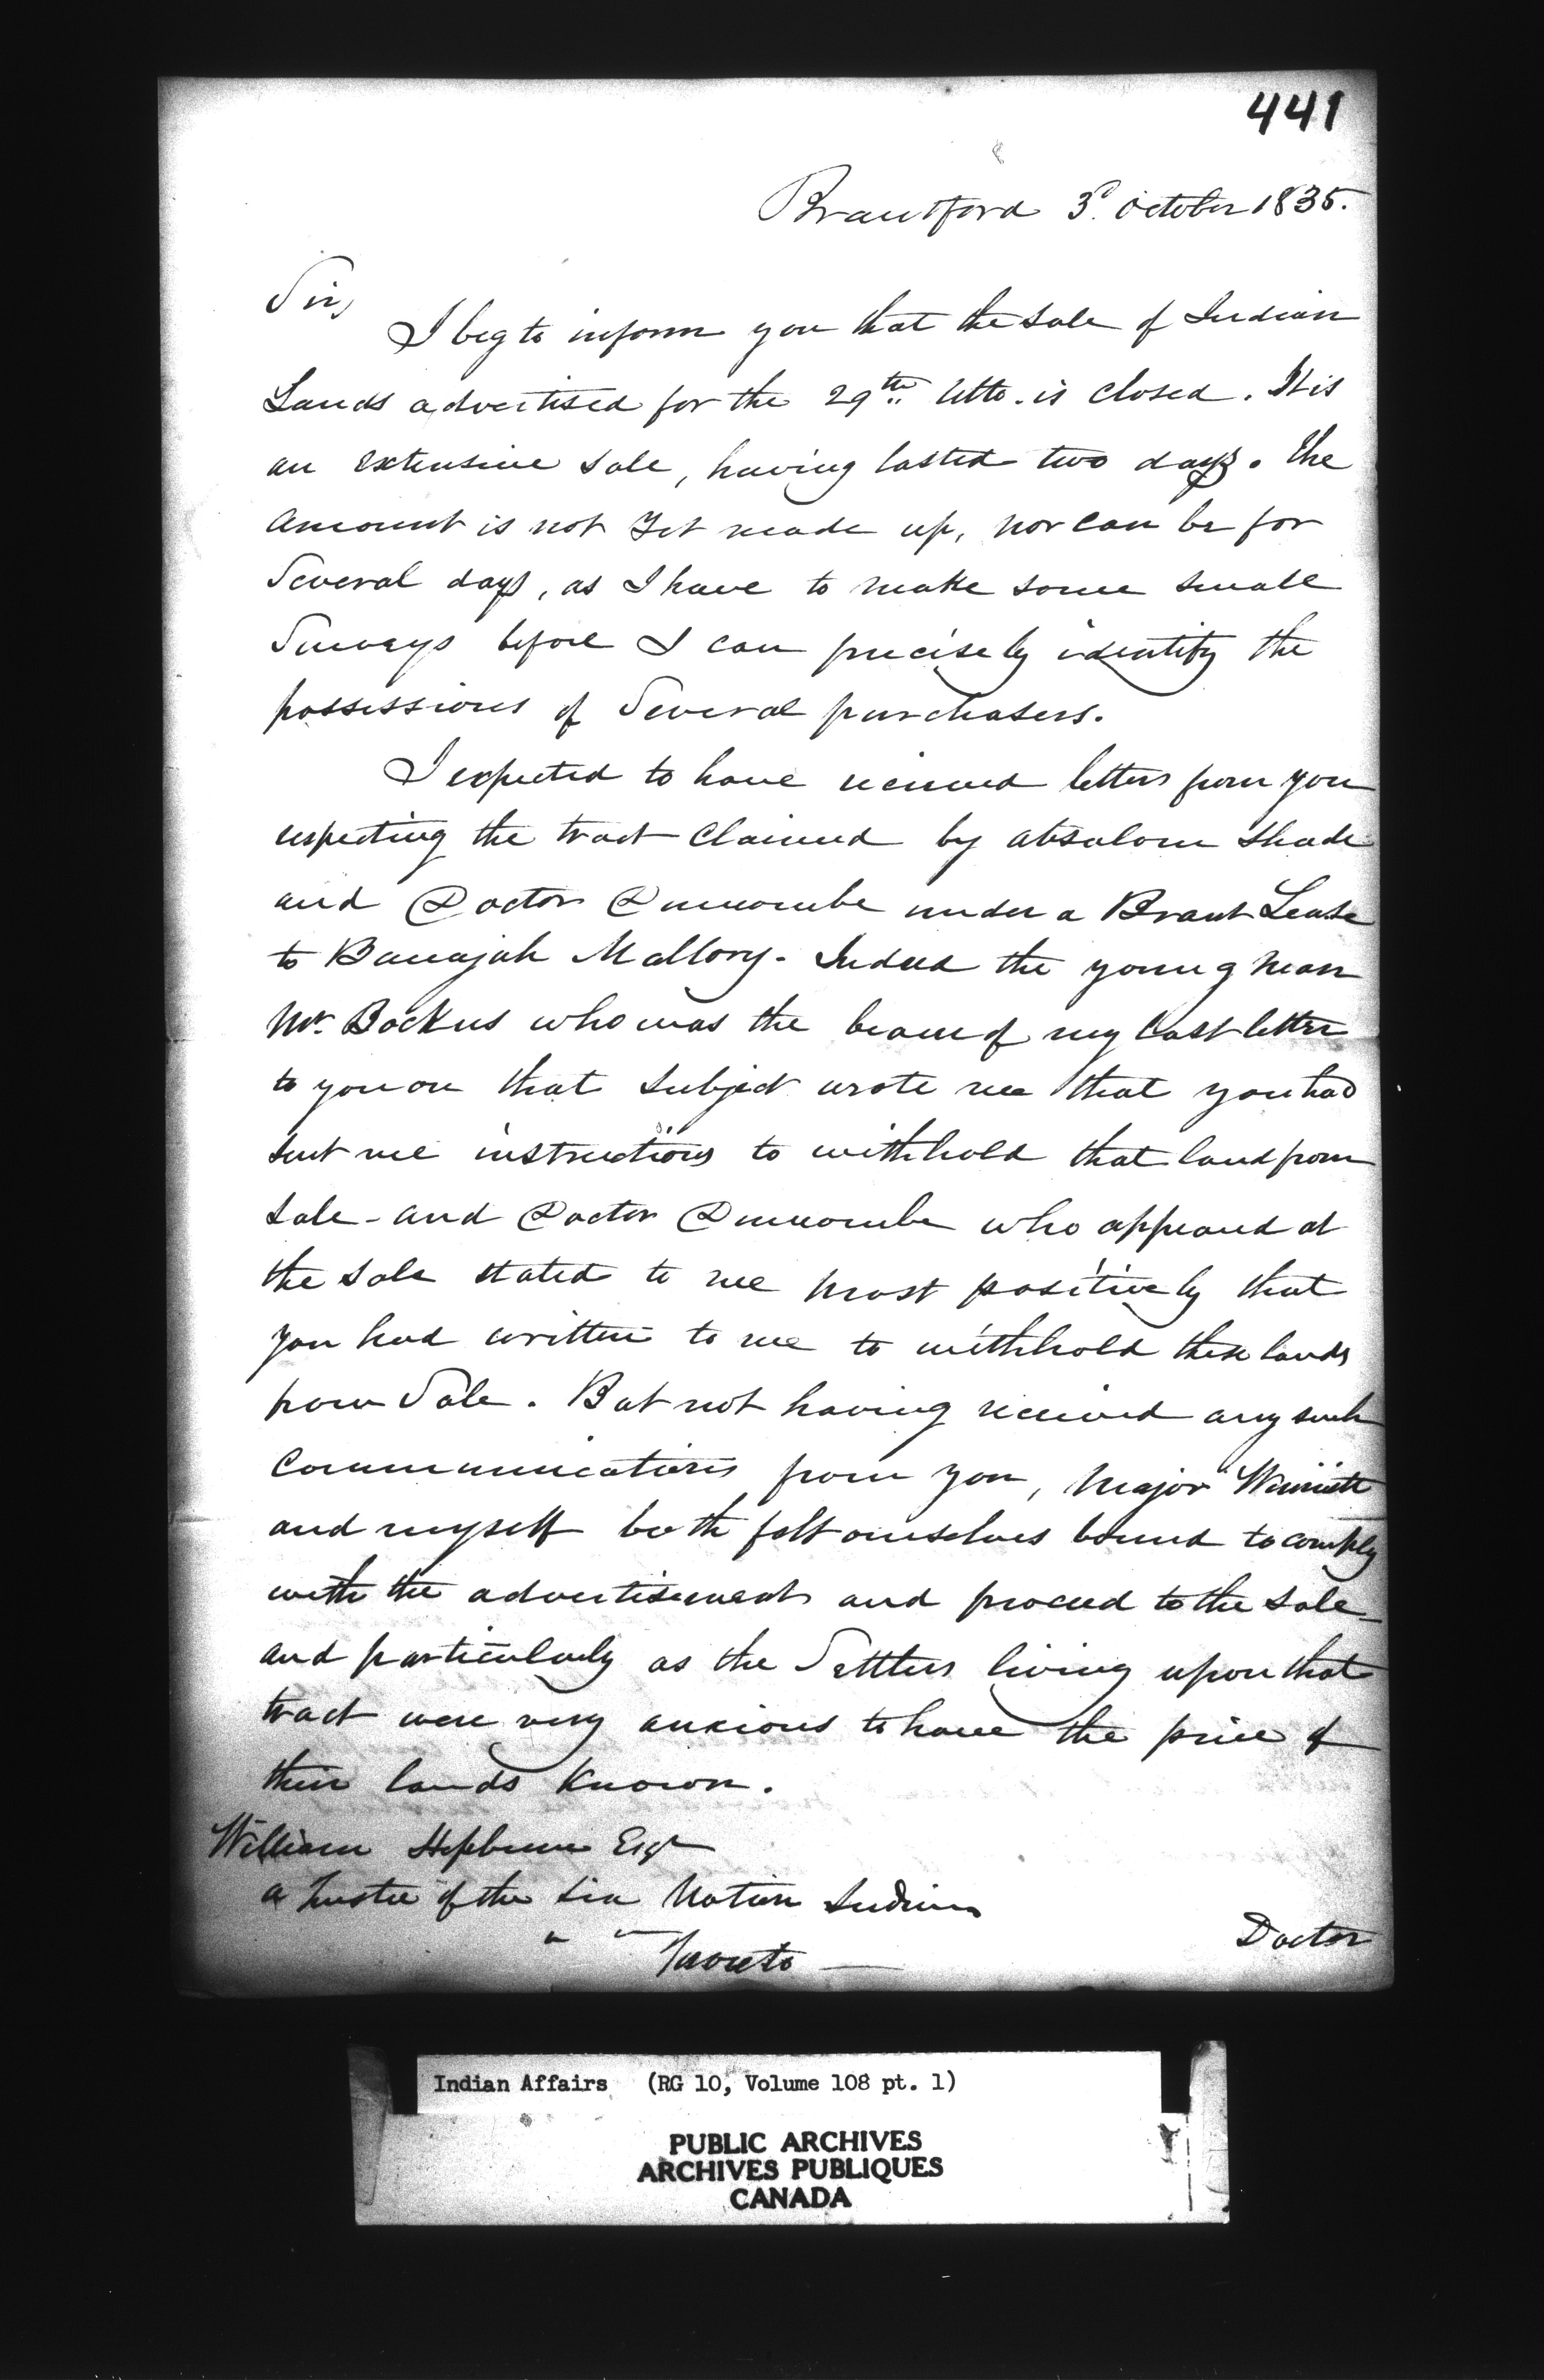 441
Brantford 3d. October 1835.
Sir,
I beg to inform you that the sale of Indian
Lands advertised for the 29th Ulto. is closed. It is
an extensive sale, having lasted two days. The
amount is not Yet made up, nor can be for
Several days, as I have to make some small
Surveys before I can precisely identify the
possessions of Several purchasers.
I expected to have received letters from you
respecting the tract Claimed by Absalom Shade
and Doctor Duncombe under a Brant Lease
to Banajah Mallory. Indeed the young man
Mr. Bockus who was the bearer of my last letter
to you on that subject wrote me that you had
sent me instructions to withhold that land from
sale - and Doctor Duncombe who appeared at
the sale stated to me most positively that
you had written to me to withhold these lands
from Sale. But not having received any such
Communications from you, Major Winniett
and myself both felt ourselves bound to comply
with the advertisement and proceed to the sale
and particularly as the Settlers living upon that
tract were very anxious to have the price of
their lands Known.
William Hepburne Esqr
a Trustee of the Six Nation Indians
" " Toronto
Doctor
Indian Affairs (RG 10, Volume 108 pt. 1)
PUBLIC ARCHIVES
ARCHIVES PUBLIQUES
CANADA